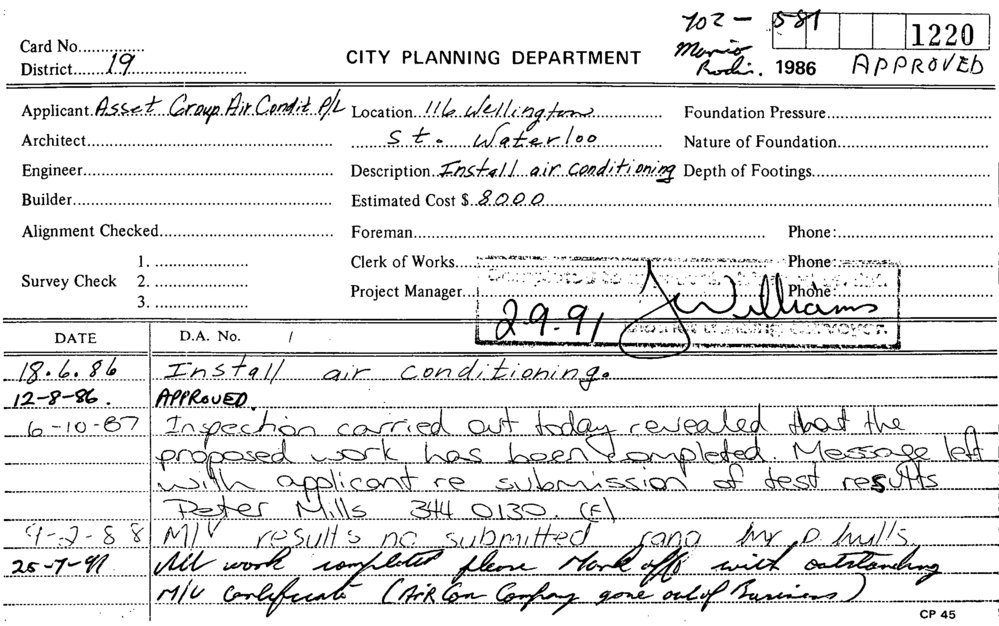 702 - 581 1220
Card No.
District 19
CITY PLANNING DEPARTMENT
Mario
1986 APPROVED
Applicant Asset Group Air Condit P/L Location 116 Wellington Foundation Pressure
Architect St. Waterloo Nature of Foundation
Engineer Description Install air conditioning Depth of Footings
Builder Estimated Cost $ 8000
Alignment Checked Foreman Phone:
1. Clerk of Works Phone:
Survey Check 2.
Project Manager Phone:
3.
2.9.91 Williams
DATE D.A. No. /
18.6.86 Install air conditioning.
12-8-86. APPROVED.
6-10-87 Inspection carried out today revealed that the
proposed work has been completed. Message left
with applicant re submission of test results
Peter Mills 344 0130. (F)
9-2-88 M/V results no submitted rang Mr P Mills.
25-7-91 All work completed please Mark off with outstanding
M/V Certificate (Air Con Company gone out of Business)
CP 45